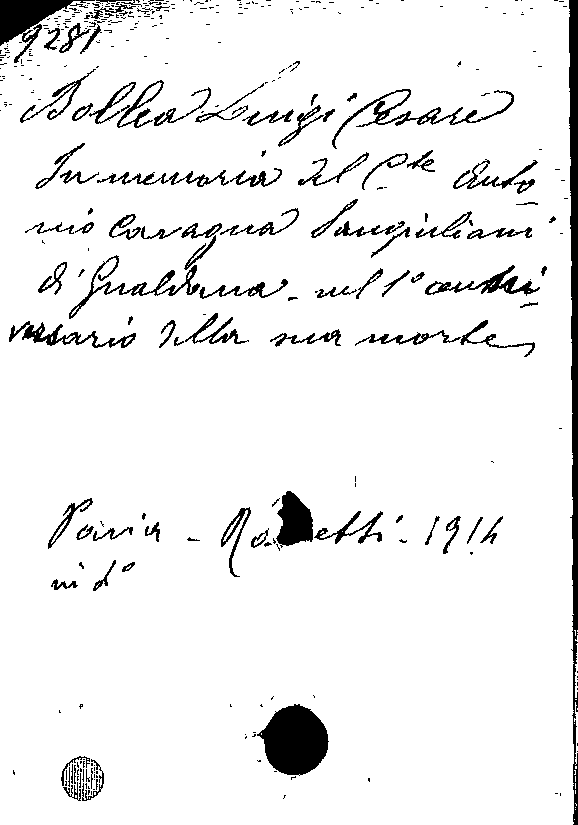 9281
Bollea Luigi Cesare
In memoria del Cte Anto
nio Cavagna Sangiuliani
di Gualdana - nel 1° anni
versario della sua morte
Pavia - 1914
in 4°